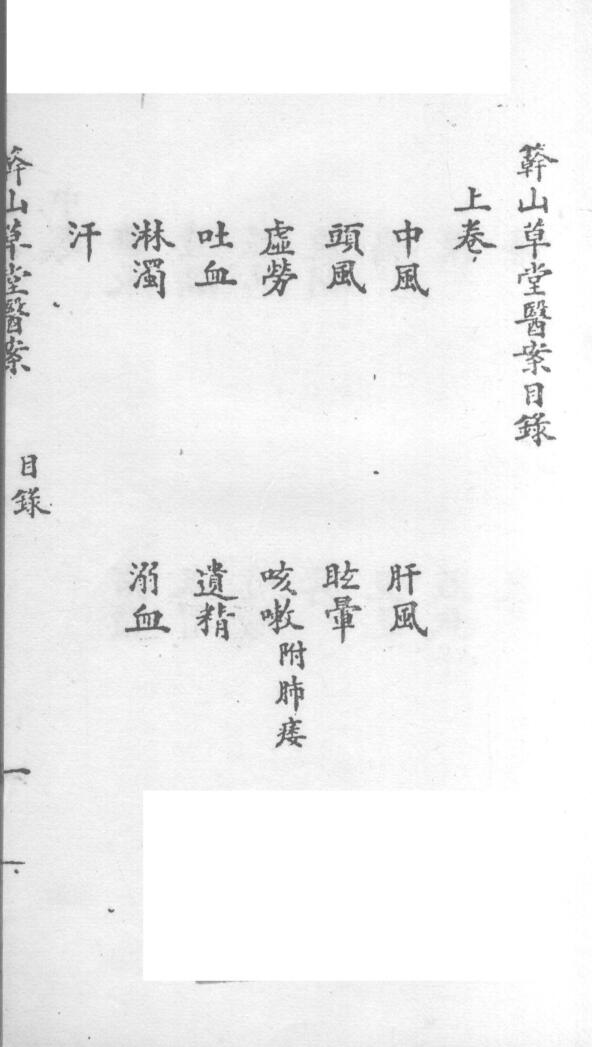 簳山草堂醫案目錄
上卷
中風　肝風
頭風　眩暈
虛勞　咳嗽附肺痿
吐血　遺精
淋濁　溺血
汗
簳山草堂醫案　目錄　一